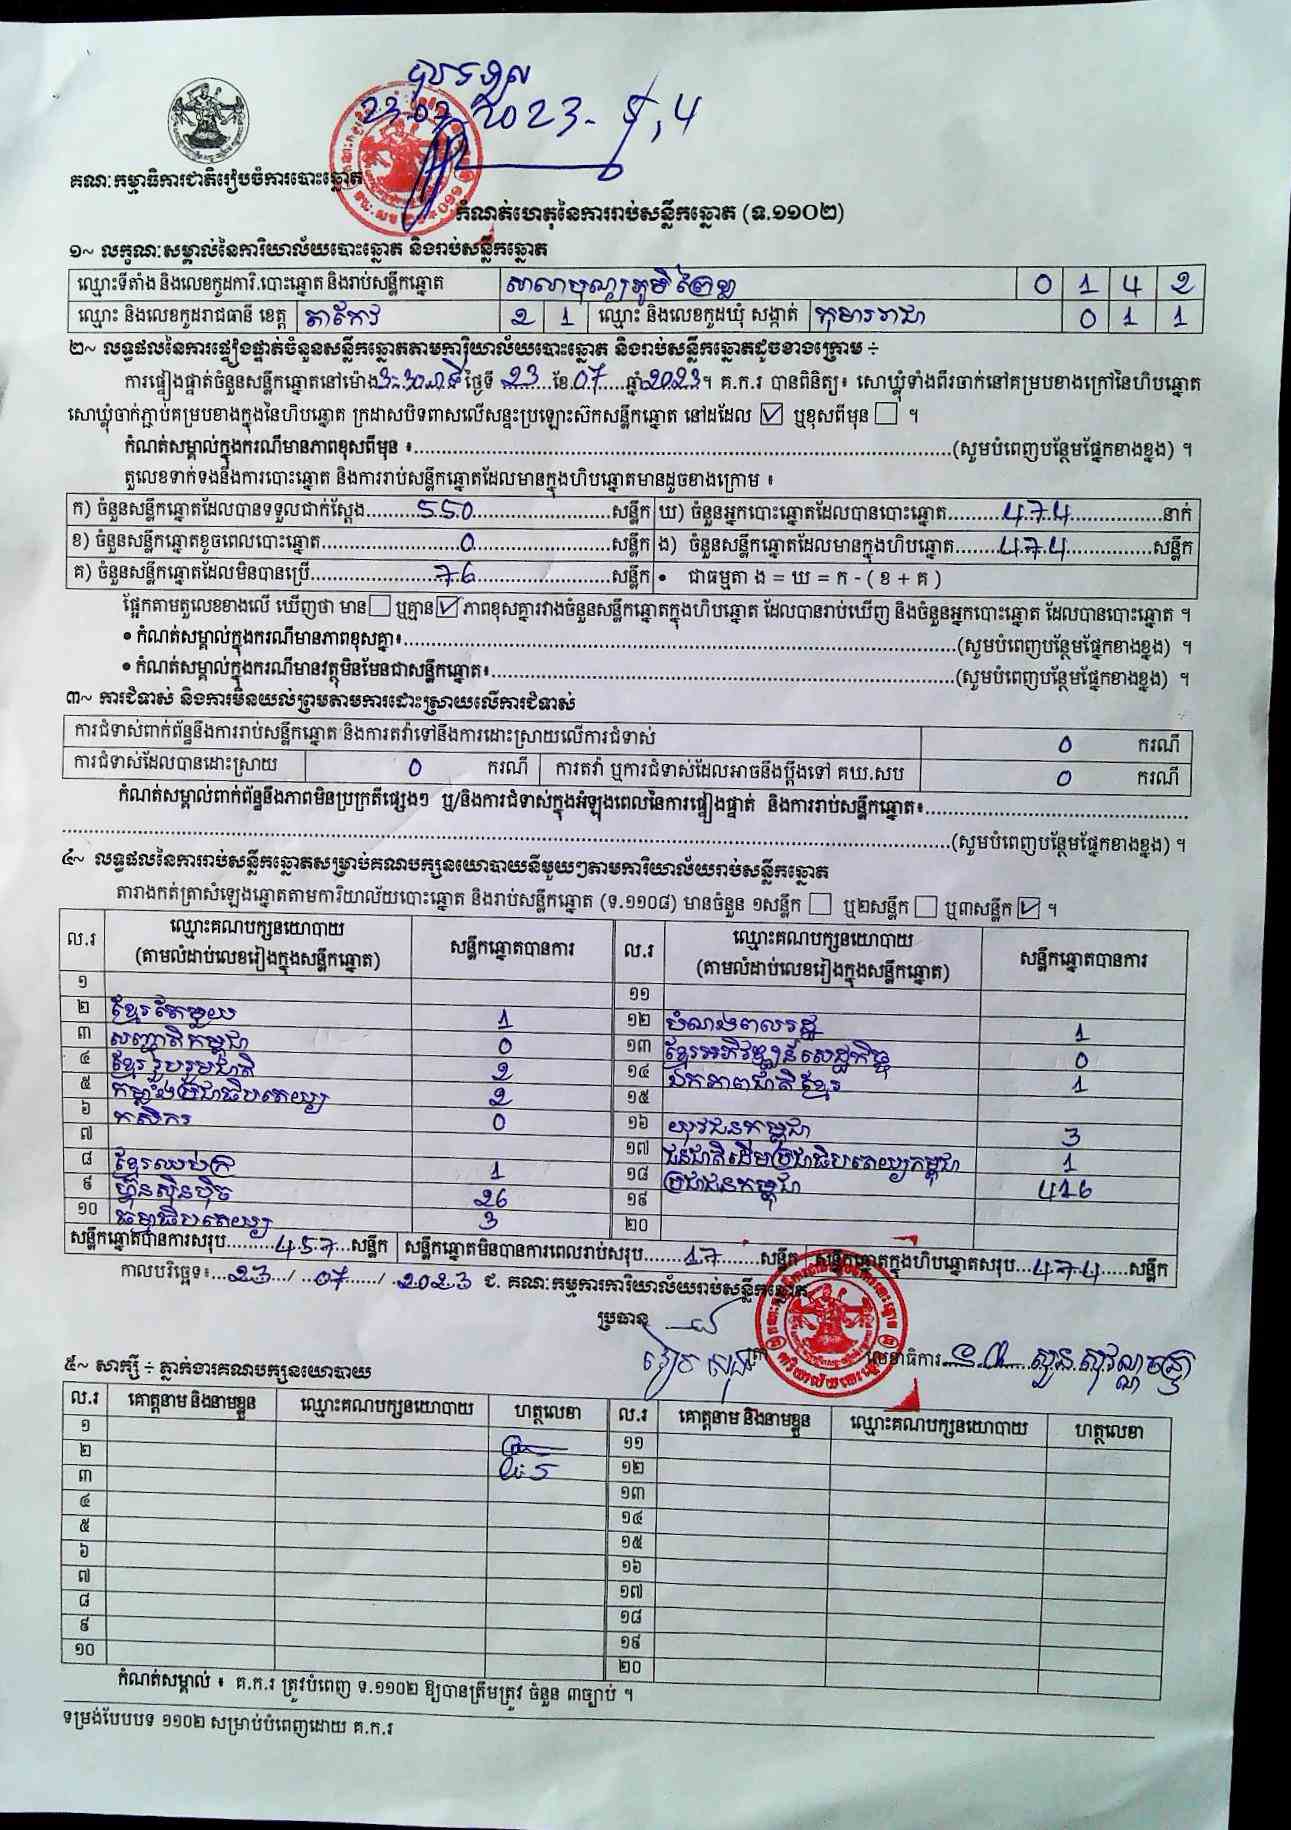 23.07.2023
គណៈកម្មាធិការជាតិរៀបចំការបោះឆ្នោត
កំណត់ហេតុនៃការរាប់សន្លឹកឆ្នោត (ទ.១១០២)
១~ លក្ខណៈសម្គាល់នៃការិយាល័យបោះឆ្នោត និងរាប់សន្លឹកឆ្នោត
ឈ្មោះទីតាំង និងលេខកូដការិ.បោះឆ្នោត និងរាប់សន្លឹកឆ្នោត សាលាបុណ្យភូមិ 0 1 4 2
ឈ្មោះ និងលេខកូដរាជធានី ខេត្ត តាកែវ 2 1 ឈ្មោះ និងលេខកូដឃុំ សង្កាត់ កុមាររាជា 0 1 1
២~ លទ្ធផលនៃការផ្ទៀងផ្ទាត់ចំនួនសន្លឹកឆ្នោតតាមការិយាល័យបោះឆ្នោត និងរាប់សន្លឹកឆ្នោតដូចខាងក្រោម ÷
ការផ្ទៀងផ្ទាត់ចំនួនសន្លឹកឆ្នោតនៅម៉ោង 3:30 នាទី ថ្ងៃទី 23 ខែ 07 ឆ្នាំ 2023 ។ គ.ក.រ បានពិនិត្យ៖ សោឃ្លុំទាំងពីរចាក់នៅគម្របខាងក្រៅនៃហិបឆ្នោត
សោឃ្លុំចាក់ភ្ជាប់គម្របខាងក្នុងនៃហិបឆ្នោត ក្រដាសបិទពាសលើសន្ទះប្រឡោះស៊កសន្លឹកឆ្នោត នៅដដែល ☑ ឬខុសពីមុន ☐ ។
កំណត់សម្គាល់ក្នុងករណីមានភាពខុសពីមុន ៖ (សូមបំពេញបន្ថែមផ្នែកខាងខ្នង) ។
តួលេខទាក់ទងនឹងការបោះឆ្នោត និងការរាប់សន្លឹកឆ្នោតដែលមានក្នុងហិបឆ្នោតមានដូចខាងក្រោម ៖
ក) ចំនួនសន្លឹកឆ្នោតដែលបានទទួលជាក់ស្តែង 550 សន្លឹក ឃ) ចំនួនអ្នកបោះឆ្នោតដែលបានបោះឆ្នោត 474 នាក់
ខ) ចំនួនសន្លឹកឆ្នោតខូចពេលបោះឆ្នោត 0 សន្លឹក ង) ចំនួនសន្លឹកឆ្នោតដែលមានក្នុងហិបឆ្នោត 474 សន្លឹក
គ) ចំនួនសន្លឹកឆ្នោតដែលមិនបានប្រើ 76 សន្លឹក • ជាធម្មតា ង = ឃ = ក - ( ខ + គ )
ផ្អែកតាមតួលេខខាងលើ ឃើញថា មាន ☐ ឬគ្មាន ☑ ភាពខុសគ្នារវាងចំនួនសន្លឹកឆ្នោតក្នុងហិបឆ្នោត ដែលបានរាប់ឃើញ និងចំនួនអ្នកបោះឆ្នោត ដែលបានបោះឆ្នោត ។
• កំណត់សម្គាល់ក្នុងករណីមានភាពខុសគ្នា៖ (សូមបំពេញបន្ថែមផ្នែកខាងខ្នង) ។
• កំណត់សម្គាល់ក្នុងករណីមានវត្ថុមិនមែនជាសន្លឹកឆ្នោត៖ (សូមបំពេញបន្ថែមផ្នែកខាងខ្នង) ។
៣~ ការជំទាស់ និងការមិនយល់ព្រមតាមការដោះស្រាយលើការជំទាស់
ការជំទាស់ពាក់ព័ន្ធនឹងការរាប់សន្លឹកឆ្នោត និងការតវ៉ាទៅនឹងការដោះស្រាយលើការជំទាស់ 0 ករណី
ការជំទាស់ដែលបានដោះស្រាយ 0 ករណី ការតវ៉ា ឬការជំទាស់ដែលអាចនឹងប្តឹងទៅ គឃ.សប 0 ករណី
កំណត់សម្គាល់ពាក់ព័ន្ធនឹងភាពមិនប្រក្រតីផ្សេងៗ ឬ/និងការជំទាស់ក្នុងអំឡុងពេលនៃការផ្ទៀងផ្ទាត់ និងការរាប់សន្លឹកឆ្នោត៖
(សូមបំពេញបន្ថែមផ្នែកខាងខ្នង) ។
៤~ លទ្ធផលនៃការរាប់សន្លឹកឆ្នោតសម្រាប់គណបក្សនយោបាយនីមួយៗតាមការិយាល័យរាប់សន្លឹកឆ្នោត
តារាងកត់ត្រាសំឡេងឆ្នោតតាមការិយាល័យបោះឆ្នោត និងរាប់សន្លឹកឆ្នោត (ទ.១១០៨) មានចំនួន ១សន្លឹក ☐ ឬ២សន្លឹក ☐ ឬ៣សន្លឹក ☑ ។
ល.រ ឈ្មោះគណបក្សនយោបាយ (តាមលំដាប់លេខរៀងក្នុងសន្លឹកឆ្នោត) សន្លឹកឆ្នោតបានការ ល.រ ឈ្មោះគណបក្សនយោបាយ (តាមលំដាប់លេខរៀងក្នុងសន្លឹកឆ្នោត) សន្លឹកឆ្នោតបានការ
១ ១១
២ ខ្មែរតែមួយ 1 ១២ បំណងពលរដ្ឋ 1
៣ សញ្ជាតិកម្ពុជា 0 ១៣ ខ្មែរអភិវឌ្ឍន៍សេដ្ឋកិច្ច 0
៤ ខ្មែររួបរួមជាតិ 2 ១៤ ឯកភាពជាតិខ្មែរ 1
៥ កម្លាំងប្រជាធិបតេយ្យ 2 ១៥
៦ កសិករ 0 ១៦ យុវជនកម្ពុជា 3
៧ ១៧ ជនជាតិដើមប្រជាធិបតេយ្យកម្ពុជា 1
៨ ខ្មែរឈប់ក្រ 1 ១៨ ប្រជាជនកម្ពុជា 416
៩ ហ្វ៊ុនស៊ិនប៉ិច 26 ១៩
១០ ធម្មាធិបតេយ្យ 3 ២០
សន្លឹកឆ្នោតបានការសរុប 457 សន្លឹក សន្លឹកឆ្នោតមិនបានការពេលរាប់សរុប 17 សន្លឹក សន្លឹកឆ្នោតក្នុងហិបឆ្នោតសរុប 474 សន្លឹក
កាលបរិច្ឆេទ៖ 23 / 07 / 2023 ជ. គណៈកម្មការការិយាល័យរាប់សន្លឹកឆ្នោត
ប្រធាន
លេខាធិការ
៥~ សាក្សី ÷ ភ្នាក់ងារគណបក្សនយោបាយ
ល.រ គោត្តនាម និងនាមខ្លួន ឈ្មោះគណបក្សនយោបាយ ហត្ថលេខា ល.រ គោត្តនាម និងនាមខ្លួន ឈ្មោះគណបក្សនយោបាយ ហត្ថលេខា
១ ១១
២ ១២
៣ ១៣
៤ ១៤
៥ ១៥
៦ ១៦
៧ ១៧
៨ ១៨
៩ ១៩
១០ ២០
កំណត់សម្គាល់ ៖ គ.ក.រ ត្រូវបំពេញ ទ.១១០២ ឱ្យបានត្រឹមត្រូវ ចំនួន ៣ច្បាប់ ។
ទម្រង់បែបបទ ១១០២ សម្រាប់បំពេញដោយ គ.ក.រ